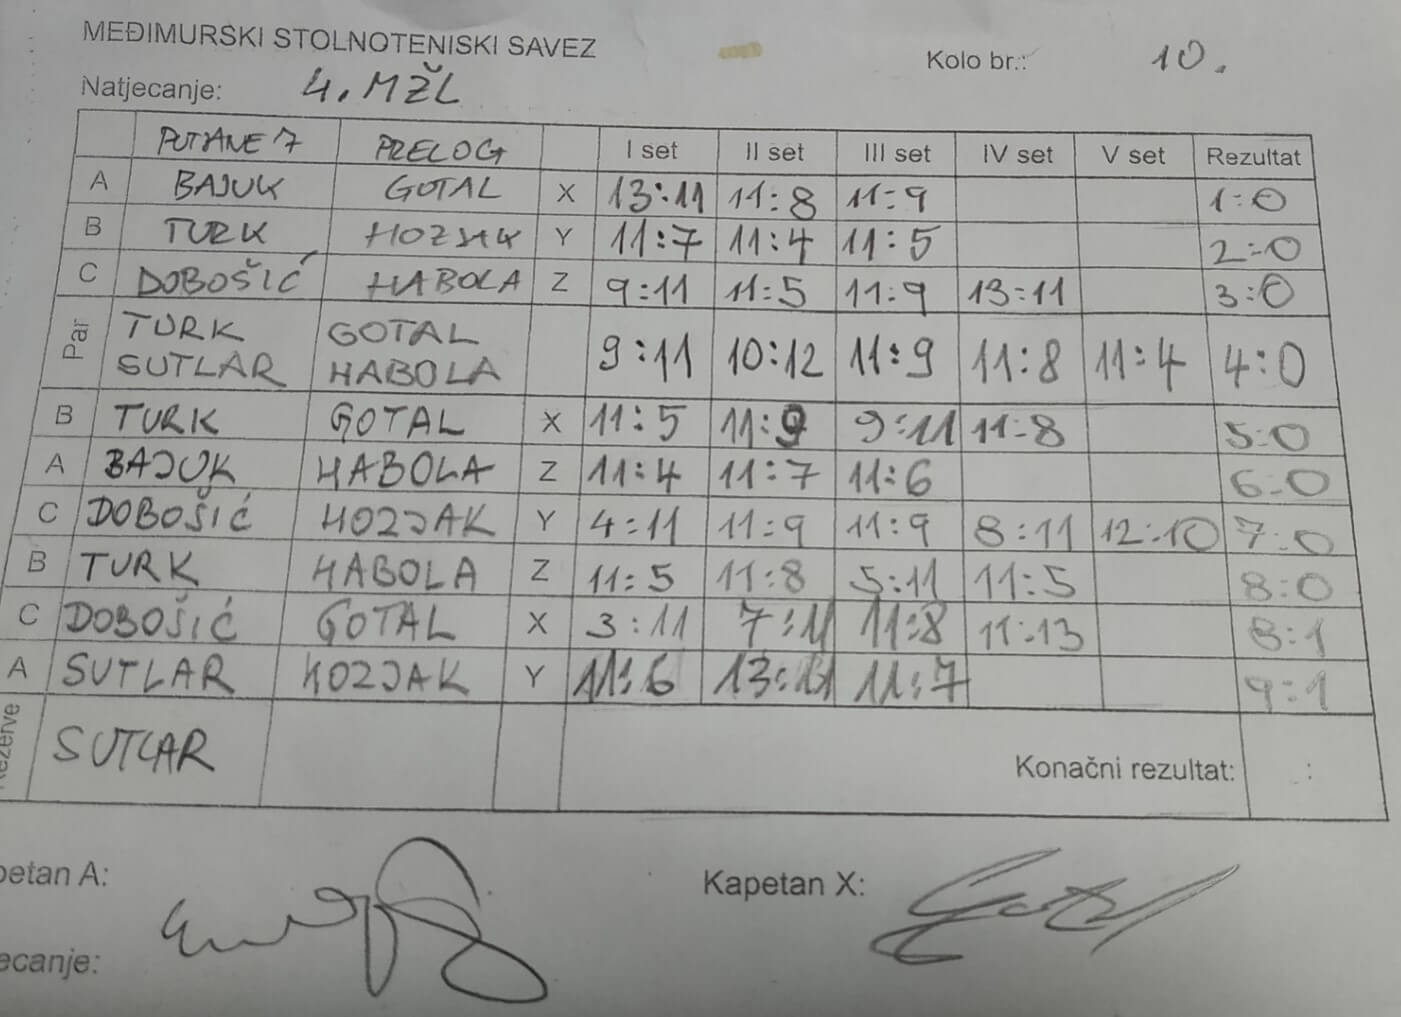 MEĐIMURSKI STOLNOTENISKI SAVEZ
Kolo br.: 10.
Natjecanje: 4. MŽL
PUTJANE 7 PRELOG I set II set III set IV set V set Rezultat
A BAJUK GOTAL X 13:11 11:8 11:9 1:0
B TURK HOZJAK Y 11:7 11:4 11:5 2:0
C DOBOŠIĆ HABOLA Z 9:11 11:5 11:9 13:11 3:0
Par TURK SUTLAR GOTAL HABOLA 9:11 10:12 11:9 11:8 11:4 4:0
B TURK GOTAL X 11:5 11:9 9:11 11:8 5:0
A BAJUK HABOLA Z 11:4 11:7 11:6 6:0
C DOBOŠIĆ HOZJAK Y 4:11 11:9 11:9 8:11 12:10 7:0
B TURK HABOLA Z 11:5 11:8 5:11 11:5 8:0
C DOBOŠIĆ GOTAL X 3:11 7:11 11:8 11:13 8:1
A SUTLAR HOZJAK Y 11:6 13:11 11:7 9:1
Rezerve SUTLAR Konačni rezultat: :
petan A: Kapetan X:
ecanje: